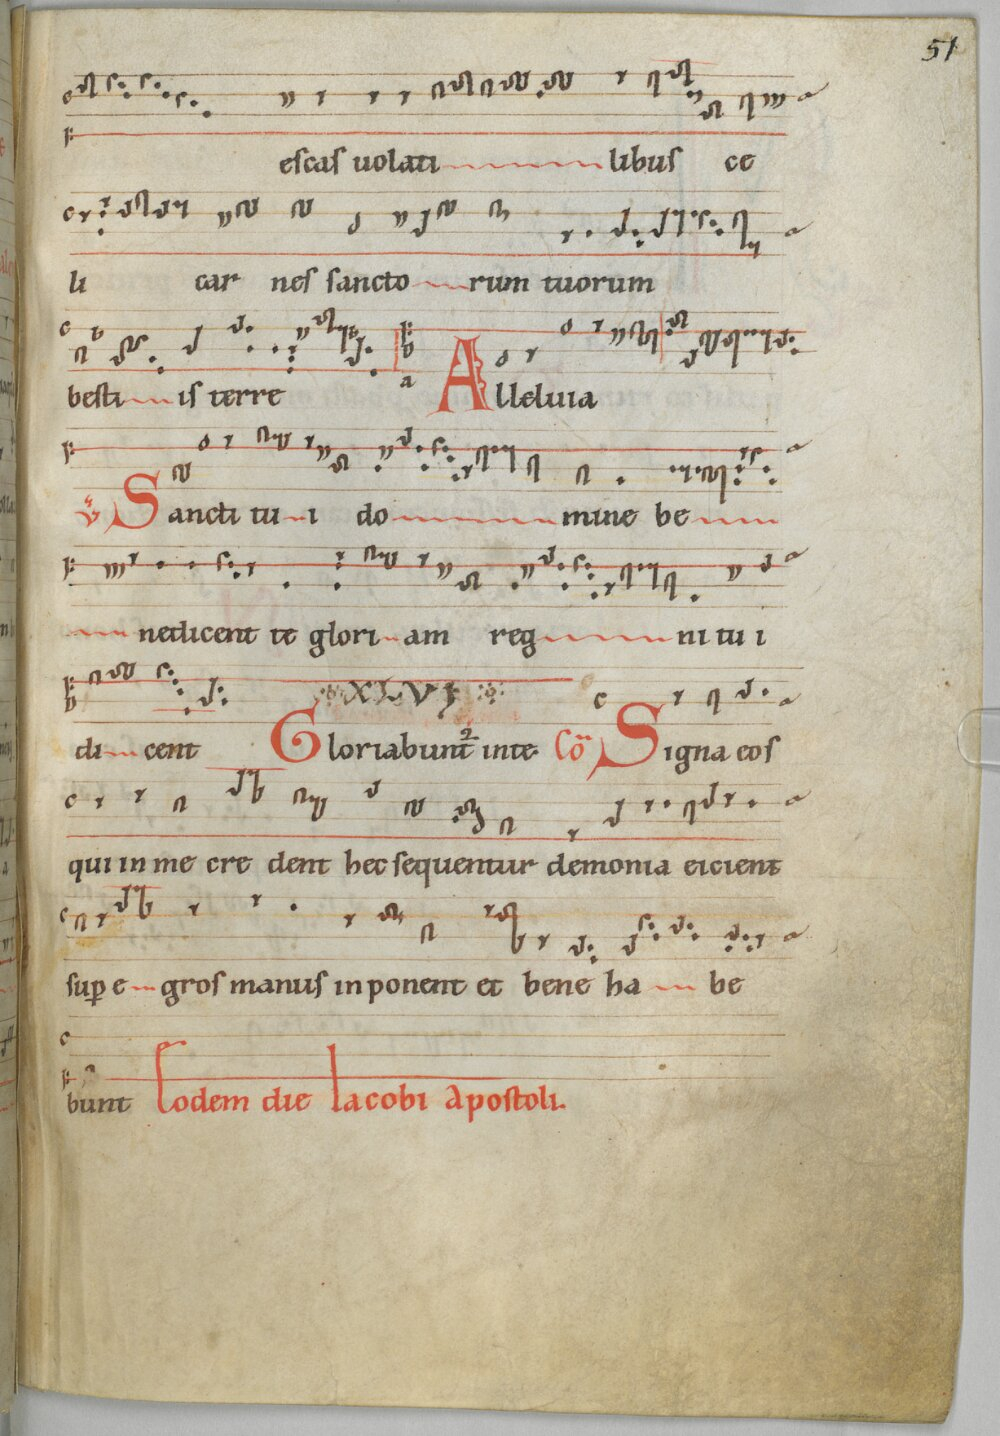 51
escas uolati libus ce
li car nes sancto rum tuorum
besti is terre Alleluia
℣ Sancti tu i do mine be
nedicent te glori am reg ni tu i
XLVI
di cent Gloriabunt inte Cō Signa eos
qui in me cre dent hec sequentur demonia eicient
sup̱ e gros manus inponent et bene ha be
bunt Eodem die Iacobi Apostoli.